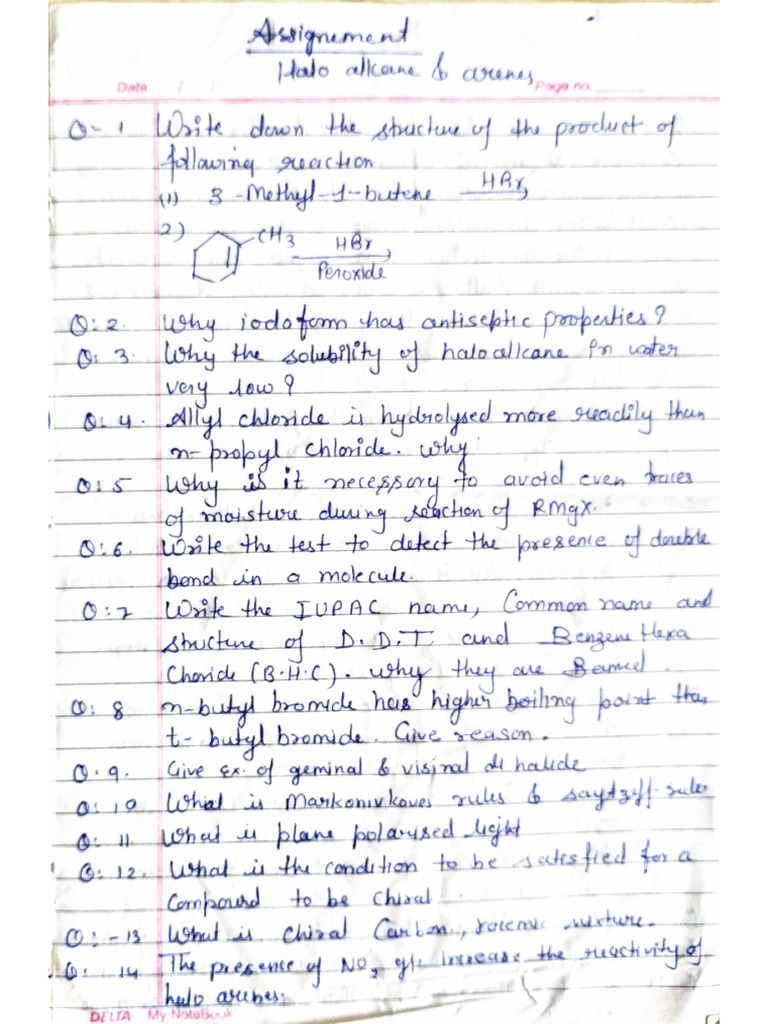 Assignement
Halo alkane & arenes
Date / / Page no.
Q-1 Write down the structure of the product of
following reaction
(1) 3-Methyl-1-butene HBr
2) CH3 HBr
Peroxide
Q:2. Why iodoform has antiseptic properties?
Q:3. Why the solubility of haloalkane in water
very low?
Q:4. Allyl chloride is hydrolysed more readily than
n-propyl chloride. Why
Q:5 Why is it necessary to avoid even traces
of moisture during reaction of RMgX.
Q:6. Write the test to detect the presence of double
bond in a molecule.
Q:7 Write the IUPAC name, Common name and
structure of D.D.T and Benzene Hexa
Choride (B.H.C). Why they are Banned.
Q:8 n-butyl bromide has higher boiling point than
t-butyl bromide. Give reason.
Q.9. Give Ex. of geminal & visinal di halide
Q:10 What is Markonivkoves rules & saytzeff-rule
Q:11. What is plane polarised light
Q:12. What is the condition to be satisfied for a
Compound to be Chiral.
Q:-13. What is Chiral Carbon, racemic mixture.
Q:14 The presence of NO2 gp. increase the reactivity of
halo arenes.
DELTA My NoteBook